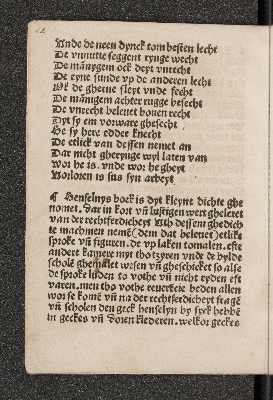 Unde de neen dynck tom besten lecht
De vnnutte seggent rynge wecht
De mānygem ock deyt vnrecht
De eyne sunde vp de anderen lecht
De mānigem achter rugge besecht
De vnrecht beleuet bouen recht
Dyt sy em vorware ghesecht
He sy here edder knecht
De etlick van dessen nemet an
Dat nicht gherynge wyl laten van
Wor he is. vnde wor he gheyt
Vorloren is sus syn arbeyt
¶ Henselyns boek is dyt kleyne dichte ghe
nomet. dar in kort vn̄ lustigen wert gheleret
van der rechtferdicheyt Uth dessem ghedich
te machmen nemē (dem dat beleuet) etlike
sproke vn̄ figuren. de vp laken to malen. efte
andere kamere myt tho tzyren vnde de bylde
scholē ghemalet wesen vn̄ gheschicket so alse
de sproke luden to vothe vn̄ nicht ryden eft
varen. men tho vothe reuerencie beden allen
wor se komē vn̄ na der rechtferdicheyt fragē
vn̄ scholen den geck henselyn by syck hebbē
in geckes vn̄ doren klederen. welkor geckes